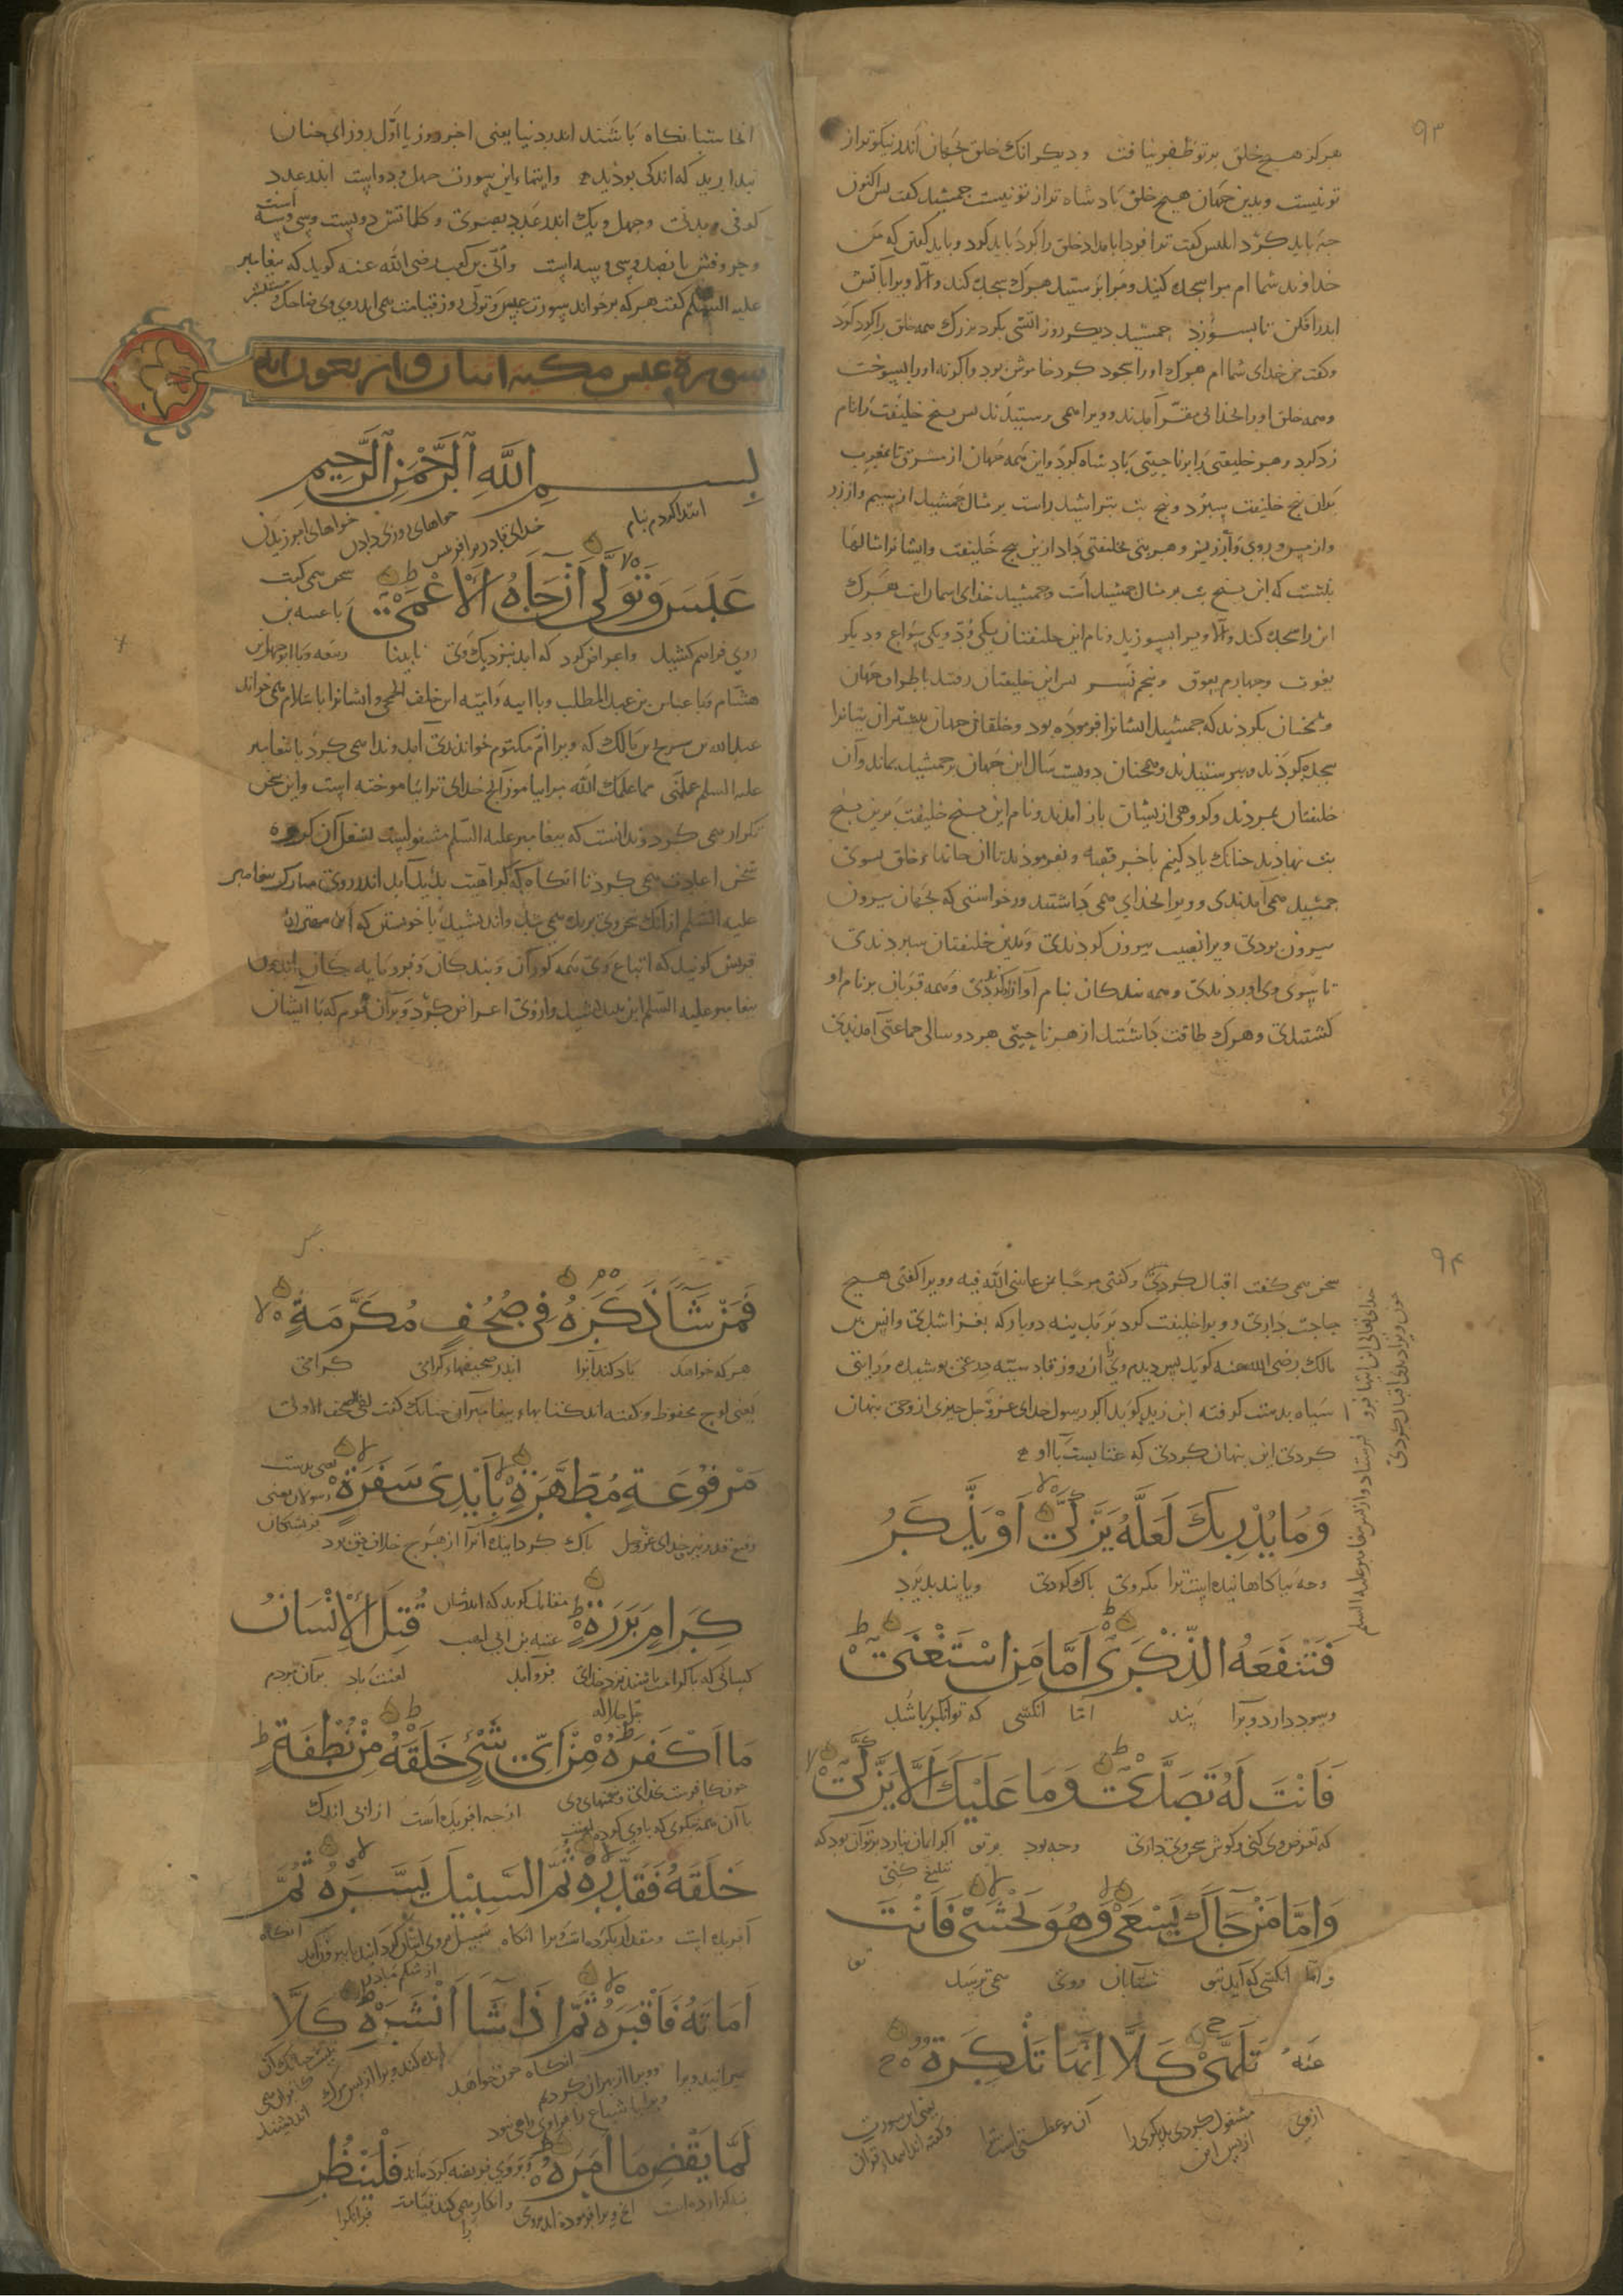 ۹۳
هرگز هیچ خلق بر تو ظفر نیافت و دیکر انک خلق بجهان اندر نیکوتر از
تو نیست و بدین جهان هیچ خلق بادشاه تر از تو نیست جمشید کفت بس اکنون
جه باید کرد ابلیس کفت ترا فردا بامداد خلق را کرد باید کرد و باید کفتن که من
خداوند شما ام مرا سجده کنید و مرا برستید هرک سجده کند والا ویرا بآتش
اندر افکن تا بسوزد جمشید دیکر روز آتشی بکرد بزرک همه خلق را کرد کرد
وکفت من خدای شما ام هرک اورا سجود کرد خاموش بود واکرنه اورا بسوخت
وهمه خلق اورا بخدایی مقر آمدند و ویرا همی برستیدند بس بنج خلیفت را نام
زد کرد و هر خلیفتی را بر ناحیتی بادشاه کرد واین همه جهان از مشرق تا مغرب
بدان بنج خلیفت سبرد و بنج بت بتراشید راست بر مثال جمشید از سیم و از زر
واز مس و روی و ارزیز و هر بتی بخلیفتی داد ازین بنج خلیفت وایشانرا مثالها
نبشت که این بنج بت بر مثال جمشید است و جمشید خدای آسمان است هرک
این را سجده کند والا ویرا بسوزید و نام این خلیفتان یکی ود و یکی سواع و دیکر
یغوث و جهارم یعوق و بنجم نسر بس این خلیفتان رفتند باطراف جهان
و همجنان بکردند که جمشید ایشانرا فرموده بود و خلقان جهان بیشتر آن بتانرا
سجده کردند و ببرستیدند و همجنان دویست سال این جهان بر جمشید بماند و آن
خلیفتان بمردند و کروهی از یشان باز آمدند و نام این بنج خلیفت برین بنج
بت نهادند جنانک یاد کنیم باخر قصه و بفرمودند تا از خاندا خلق بسوی
جمشید همی آمدندی و ویرا بخدای همی داشتند و رخواستی که بجهان بیرون
بیرون بودی ویرا نصیب بیرون کردندی و بدین خلیفتان سبردندی
تا بسوی وی اوردندی و همه بندکان بنام او آزاد کردندی و همه قربان بر نام او
کشتندی و هرک طاقت داشتند از هر ناحیتی هر دو سالی جماعتی آمدندی
انجا شبانکاه باشند اندر دنیا یعنی اخر روز یا اول روز ای جنان
بندارید که اندکی بودیدند و ایتهاء این سورت جهل و دو است اندر عدد
کوفی و مدنی و جهل و یک اندر عدد بصری و کلماتش دویست وسی وسه است
وحروفش بانصد وسی وسه است وابی بن کعب رضی الله عنه کوید که بیغامبر
علیه السلم کفت هر که برخواند سورت عبس وتولی روز قیامت همی اید روی وی ضاحک مستبشر
سورة عبس مكية اثنان واربعون اية
بسم الله الرحمن الرحيم
ابتدا کردم بنام خدای قادر بر افرینش خواهای روزی دادن خواهای امرزیدن
عَبَسَ وَتَوَلَّى أَنْ جَاءَهُ الْأَعْمَى
سخن همی کفت
با عتبه بن
روی فراهم کشید واعراض کرد که امد بنزدیک وی نابینا ربیعه و با ابوجهل بن
هشام و با عباس بن عبد المطلب و با ابیه وامیه ابن خلف الجمحی وایشانرا باسلام همی خواند
عبدالله بن سریح بن مالک که ویرا ام مکتوم خواندندی آمد وندا همی کرد یا بیغامبر
علیه السلم علمنی مما علمک الله مرا بیاموز آنج خدای ترا بیاموخته است واین سخن
تکرار همی کرد وندانست که بیغامبر علیه السلم مشغولست بشغل آن کروه
سخن اعادت همی کرد تا انکاه که کراهیت بدید آمد اندر روی مبارک بیغامبر
علیه السلم از انک سخن وی بریده همی شد واندیشید با خویشتن که این مهتران
قریش کویند که اتباع وی همه کوران و بندکان و فرومایه کان اندبس
بیغامبر علیه السلم این بیندیشید واز وی اعراض کرد وبران قوم که با ایشان
۹۴
سخن همی کفت اقبال کردی وکفتی مرحبا بمن عاتبنی الله فیه و ویرا کفتی هیچ
حاجت داری و ویرا خلیفت کرد بر مدینه دو بار که بغزا شدی وانس بن
مالک رضی الله عنه کوید بس دیدم ویرا آن روز قادسیه درعی بوشیده ورایتی
سیاه بدست کرفته ابن زید کوید اکر رسول خدای عزوجل جیزی از وحی بنهان
کردی این بنهان کردی که عتابست با او
خدای تعالی این ایتها فرو فرستاد و از بس بیغامبر علیه السلم
جون ویرا دیدی اقبال کردی
وَمَا يُدْرِيكَ لَعَلَّهُ يَزَّكَّى أَوْ يَذَّكَّرُ
وجه بیاکاهانیده است ترا مکر وی باک کردی ویا بند بذیرد
فَتَنْفَعَهُ الذِّكْرَى أَمَّا مَنِ اسْتَغْنَى
وسود دارد ویرا بند امّا انکسی که توانکر باشد
فَأَنْتَ لَهُ تَصَدَّى وَمَا عَلَيْكَ أَلَّا يَزَّكَّى
که تعرض وی کنی وکوش سخن وی داری وجه بود بر تو اکر ایمان نیارد بر تو آن بود که
تبلیغ کنی
وَأَمَّا مَنْ جَاءَكَ يَسْعَى وَهُوَ يَخْشَى فَأَنْتَ
وامّا انکسی که آید بتو شتابان ووی همی ترسد تو
عَنْهُ تَلَهَّى كَلَّا إِنَّهَا تَذْكِرَةٌ
ازوی مشغول کردی بدیکری را آن موعظتی است یعنی این سورت
از بس این وکفته اند ایتهاء قران
فَمَنْ شَاءَ ذَكَرَهُ فِي صُحُفٍ مُكَرَّمَةٍ
هر که خواهد یاد کند آنرا اندر صحیفهاء کرامی کرامی
یعنی لوح محفوظ وکفته اند کتابهاء بیغامبران جنانک کفت لفی الصحف الاولی
مَرْفُوعَةٍ مُطَهَّرَةٍ بِأَيْدِي سَفَرَةٍ
یعنی بدست
رسولان یعنی
فریشتکان
رفیع قدر نزد خدای عزوجل باک کردانیده آنرا از هرج خلاف حق بود
كِرَامٍ بَرَرَةٍ قُتِلَ الْإِنْسَانُ
مقاتل کوید که اندر شان
عتبه بن ابی لهب
کسانی که با کرامت باشند نزد خدای فرو آمد لعنت باد بر آن مردم
جل جلاله
مَا أَكْفَرَهُ مِنْ أَيِّ شَيْءٍ خَلَقَهُ مِنْ نُطْفَةٍ
جون کافرست بخدای ونعمتهای وی
با آن همه نیکوی که با وی کرده از جه افریده است از آبی اندک
خَلَقَهُ فَقَدَّرَهُ ثُمَّ السَّبِيلَ يَسَّرَهُ ثُمَّ
آفریده است ومقدار بکرده است ویرا انکاه سبیل بر وی اسان کردانید تا بیرون آمد انکاه
از شکم مادر
أَمَاتَهُ فَأَقْبَرَهُ ثُمَّ إِذَا شَاءَ أَنْشَرَهُ كَلَّا
میرانید ویرا انکاه جون خواهد زنده کند ویرا از بس مرک
لَمَّا يَقْضِ مَا أَمَرَهُ فَلْيَنْظُرِ
نکزارده است انج ویرا فرموده اند